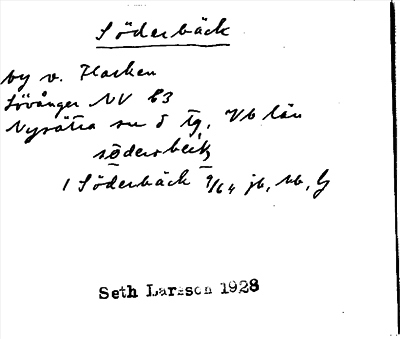 Söderbäck
by v. Flarken
Lövånger NV 63
Nysätra sn 5 tg. Vb län
södərbek
1 Söderbäck 9/64 jb, Mb, Lj
Seth Larsson 1928